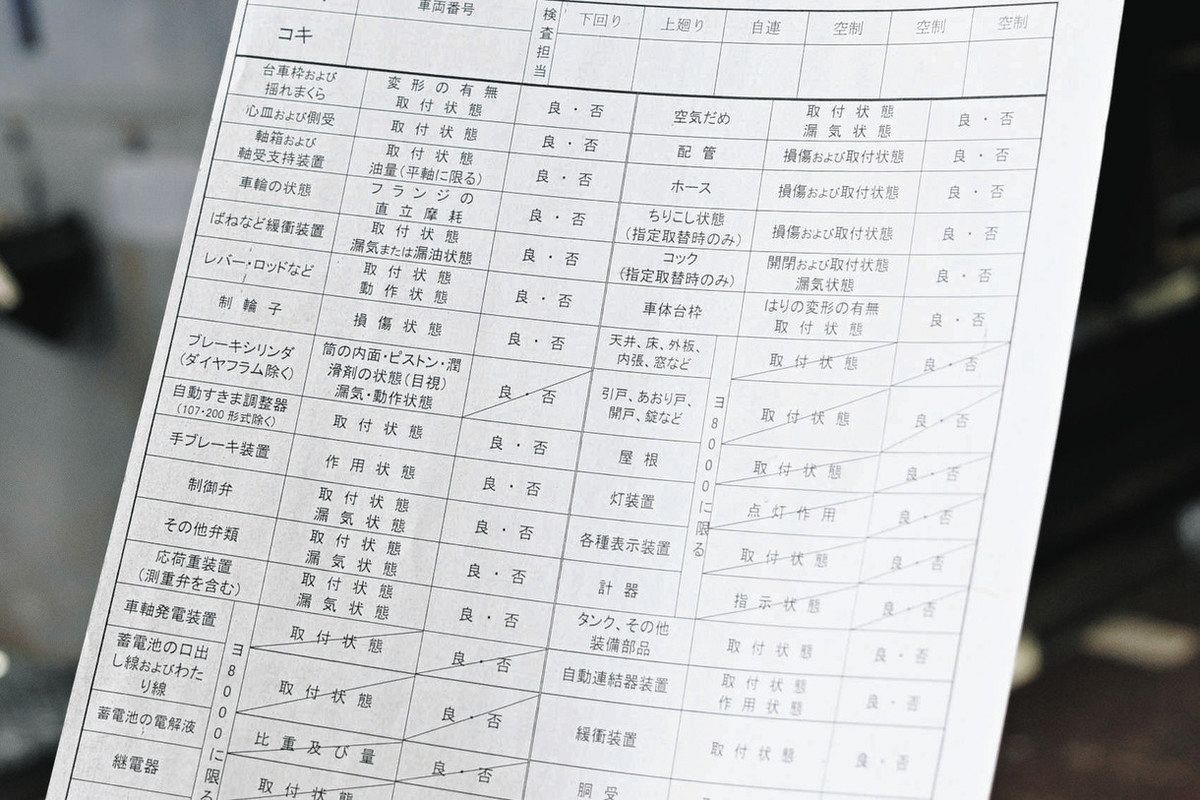 車両番号
コキ
検査担当
下回り 上廻り 自連 空制 空制 空制
台車枠および
揺れまくら
変形の有無
取付状態
良・否
心皿および側受
取付状態
良・否
軸箱および
軸受支持装置
取付状態
油量(平軸に限る)
良・否
車輪の状態
フランジの
直立摩耗
良・否
ばねなど緩衝装置
取付状態
漏気または漏油状態
良・否
レバー・ロッドなど
取付状態
動作状態
良・否
制輪子
損傷状態
良・否
ブレーキシリンダ
(ダイヤフラム除く)
筒の内面・ピストン・潤
滑剤の状態(目視)
漏気・動作状態
良・否
自動すきま調整器
(107・200形式除く)
取付状態
良・否
手ブレーキ装置
作用状態
良・否
制御弁
取付状態
漏気状態
良・否
その他弁類
取付状態
漏気状態
良・否
応荷重装置
(測重弁を含む)
取付状態
漏気状態
良・否
車軸発電装置
ヨ8000に限る
取付状態
良・否
蓄電池の口出
し線およびわた
り線
取付状態
良・否
蓄電池の電解液
比重及び量
良・否
継電器
取付状態
空気だめ
取付状態
漏気状態
良・否
配管
損傷および取付状態
良・否
ホース
損傷および取付状態
良・否
ちりこし状態
(指定取替時のみ)
損傷および取付状態
良・否
コック
(指定取替時のみ)
開閉および取付状態
漏気状態
良・否
車体台枠
はりの変形の有無
取付状態
良・否
天井、床、外板、
内張、窓など
ヨ8000に限る
取付状態
良・否
引戸、あおり戸、
開戸、錠など
取付状態
良・否
屋根
取付状態
良・否
灯装置
点灯作用
良・否
各種表示装置
取付状態
良・否
計器
指示状態
良・否
タンク、その他
装備部品
取付状態
良・否
自動連結器装置
取付状態
作用状態
良・否
緩衝装置
取付状態
良・否
胴受